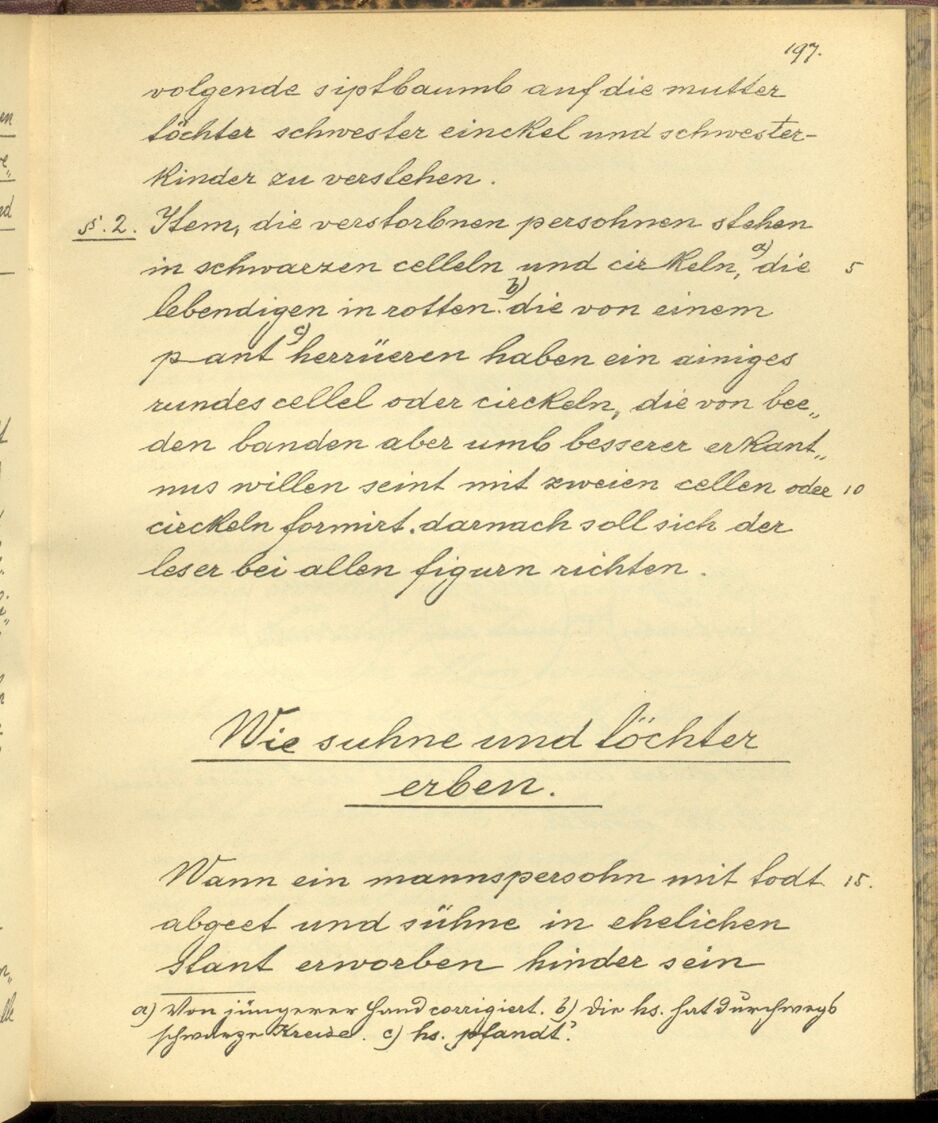 197.
volgende siptbaumb auf die mutter
töchter schwester einckel und schwester-
kinder zu verstehen.
§. 2. Item, die verstorbnen persohnen stehen
in schwarzen celleln und circkeln, a) die 5
lebendigen in rotten. b) die von einem
pant c) herrüeren haben ein ainiges
rundes cellel oder circkeln, die von bee„
den banden aber umb besserer erkant„
nus willen seint mit zweien cellen oder 10
circkeln formirt. darnach soll sich der
leser bei allen figurn richten.
Wie suhne und töchter
erben.
Wann ein mannspersohn mit todt 15.
abgeet und sühne in ehelichen
stant erworben hinder sein
a) Von jüngerer Hand corrigiert. b) Die hs. hat durchwegs
schwarze Kreise. c) hs. „pfandt".